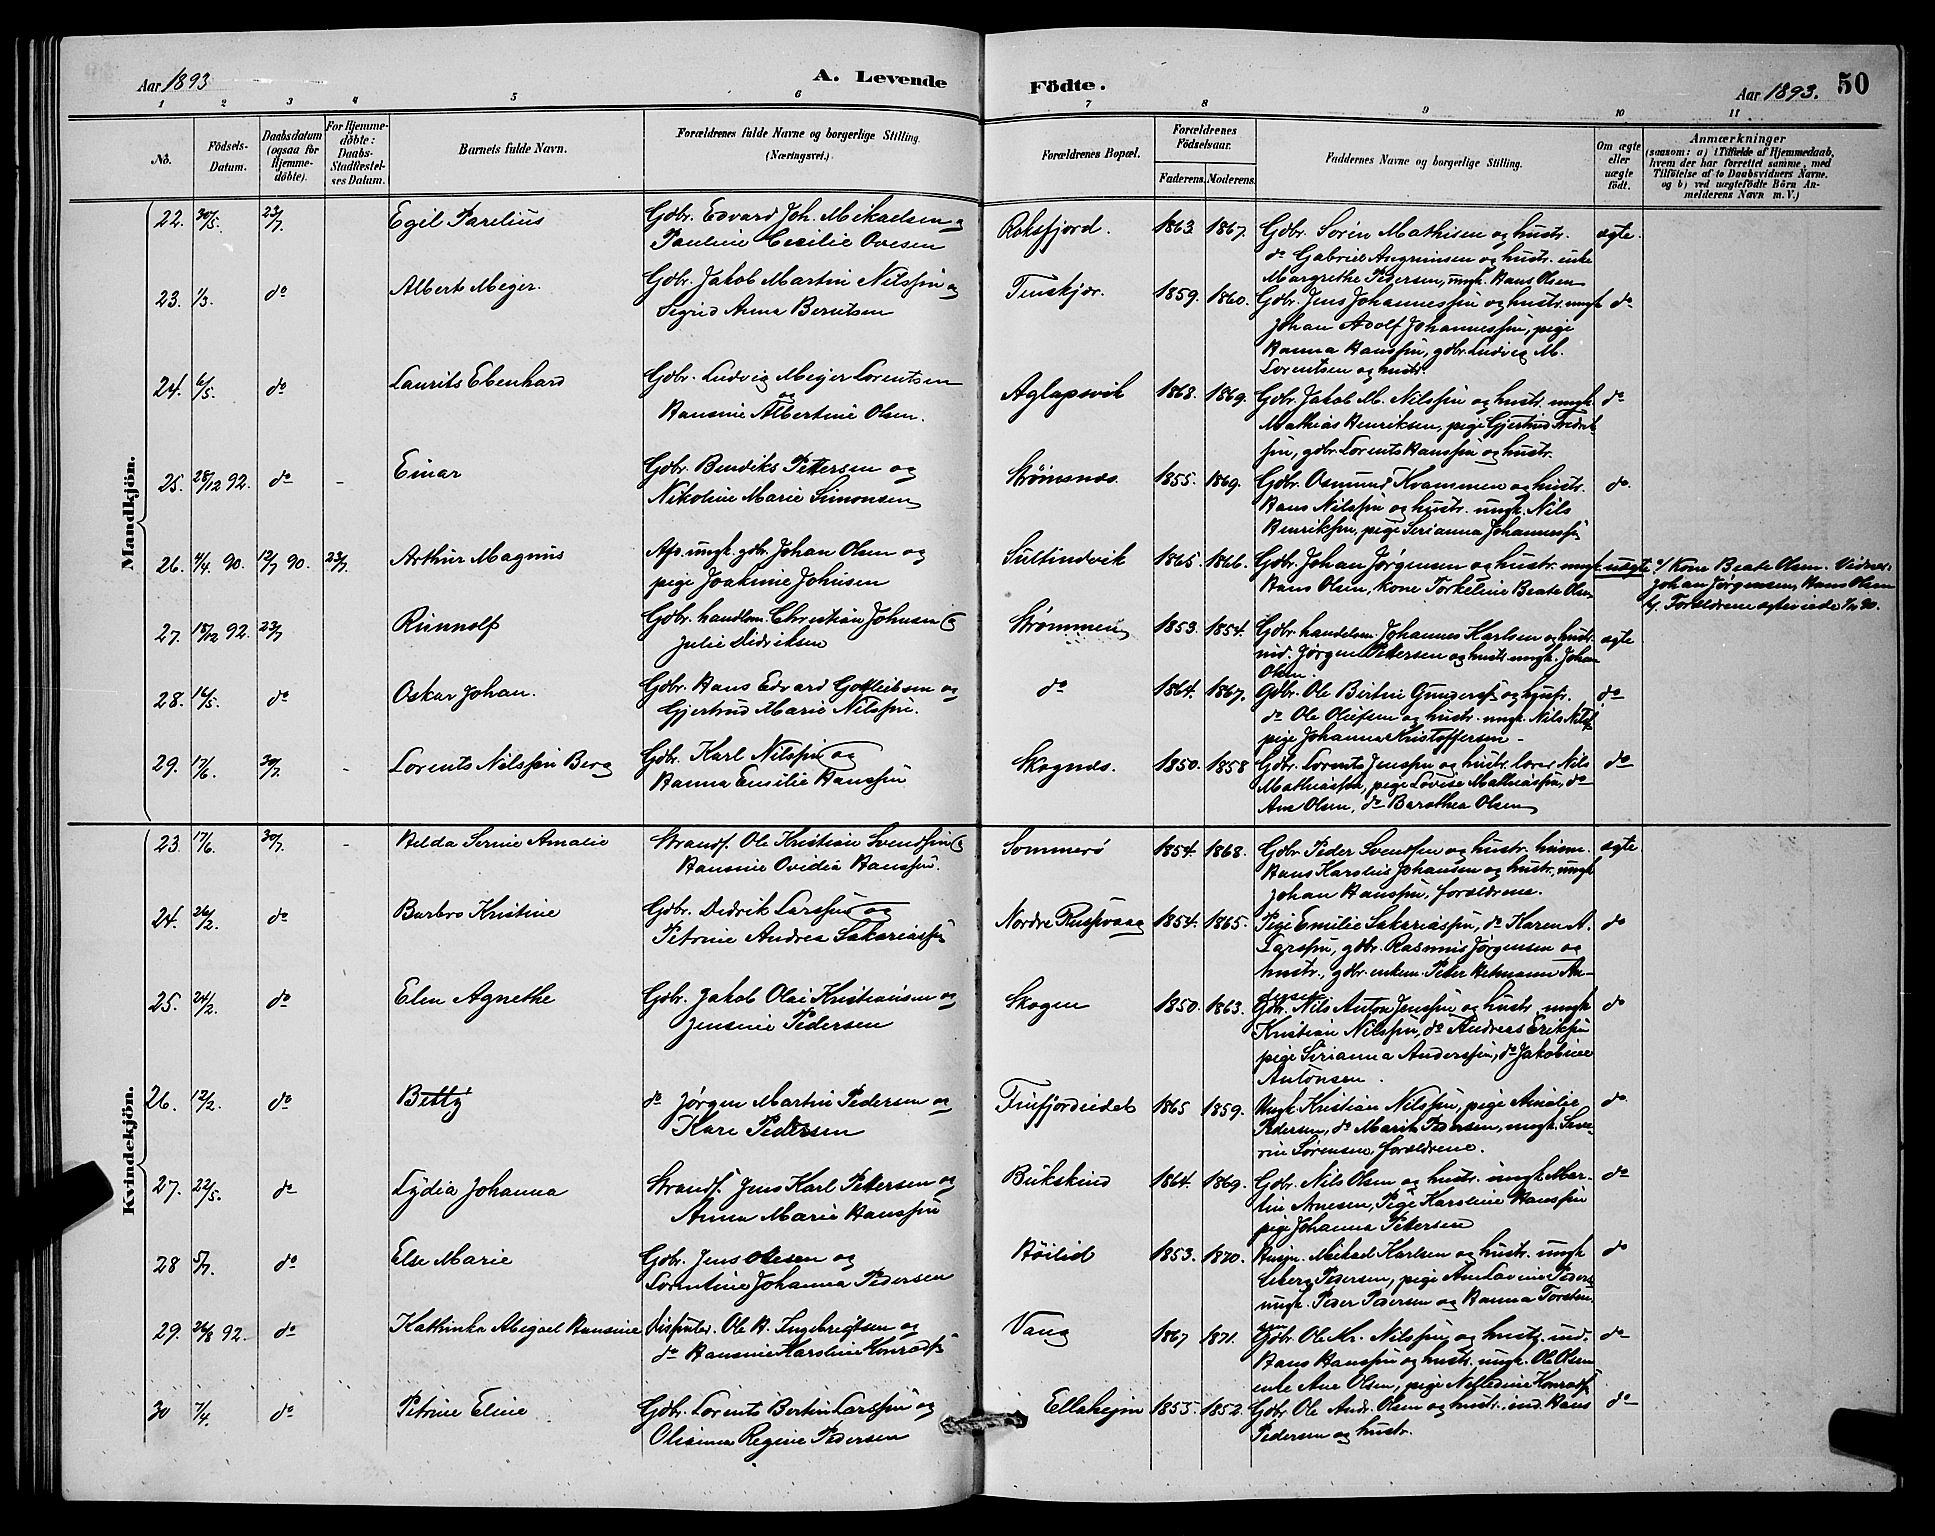 Aar 1893 A. Levende Födte. Aar 1893. 50
1 2 3 4 5 6 7 8 9 10 11
No. Födsels-Datum. Daabsdatum (ogsaa for Hjemme-döbte). For Hjemme-döbte: Daabs-Stadfæstel-ses Datum. Barnets fulde Navn. Forældrenes fulde Navne og borgerlige Stilling. (Næringsvei.) Forældrenes Bopæl. Forældrenes Födselsaar. Faderens. Moderens. Faddernes Navne og borgerlige Stilling. Om ægte eller uægte födt. Anmærkninger (saasom: a) i Tilfælde af Hjemmedaab, hvem der har forrettet samme, med Tilföielse af to Daabsvidners Navne. og b) ved uægtefödte Börn An-melderens Navn m. V.)
Mandkjön.
22. 30/5. 23/7. Egil Parelius Gdbr. Edvard Joh. Mikaelsen og Roksfjord. 1863. 1867. Gdbr. Sørin Mathisen og hustr. ægte.
Pauline Cecilie Ovesen do Gabriel Angrimsen og hustr. enke
Margrethe Pedersen, ungk. Hans Olsen
23. 1/3. do Albert Meyer. Gdbr. Jakob Martin Nilssen og Finskjør. 1859. 1860. Gdbr. Jens Johannessen og hustr. ungk. do
Sigrid Anna Berntsen Johan Adolf Johannessen, pige
Hanna Hanssen, gdbr. Ludvig M.
Lorentsen og hustr.
24. 6/5. do Laurits Ebenhard Gdbr. Ludvig Meyer Lorentsen Aglapsvik 1868. 1869. Gdbr. Jakob M. Nilssen og hustr. ungk. do
og Hansine Albertine Olsen. Mathias Henriksen, pige Gjertrud Fredrik-
sen, gdbr. Lorents Hanssen og hustr.
25. 28/12 92. do - Einar Gdbr. Bendiks Pettersen og Strømsnes. 1855. 1869. Gdbr. Osmund Kvammen og hustr. do.
Nikoline Marie Simonsen Hans Nilssen og hustr. ungk. Nils
Henriksen, pige Serianna Johannessen
26. 4/4. 90. 12/7 90. 23/7. Arthur Magnus Afs. ungk. gdbr. Johan Olsen og Sultindvik 1865. 1866. Gdbr. Johan Jørgensen og hustr. ungk. uægte a/ Kone Beate Olsen. Vidner:
pige Joakine Johnsen Hans Olsen, kone Torkeline Beate Olsen Johan Jørgensen, Hans Olsen
b/ Forældrene ægteviede 90.
27. 18/12 92. 23/7 Runnolf Gdbr. handlsm. Christian Johnsen og Strømmen 1853. 1854. Gdbr. handelsm. Johannes Karlsen og hustr. ægte
Julie Didriksen ind. Jørgen Pettersen og hustr. ungk. Johan
Olsen.
28. 16/5. do Oskar Johan. Gdbr. Hans Edvard Gottliebsen og do 1864. 1867. Gdbr. Ole Bertin Gunders. og hustr. do
Gjertrud Marie Nilssen. do Ole Olufsen og hustr. ungk. Nils Nils.
pige Johanna Kristoffersen -
29. 17/6. 30/7. - Lorents Nilssen Berg Gdbr. Karl Nilssen og Skognes. 1850. 1858 Gdbr. Lorents Jenssen og hustr. lærer Nils do
Hanna Emilie Hanssen Mathiassen, pige Lovise Mathiassen, do
Ane Olsen, do Barothea Olsen
Kvindekjön.
23. 17/6. 30/7. - Hilda Serine Amalie Strands. Ole Kristian Svendsen og Sommerø 1854. 1868. Gdbr. Peder Svendsen og hustr. husm. ægte
Hansine Ovidia Hanssen. Hans Karolius Johansen og hustr. ungk.
Johan Hanssen, forældrene.
24. 26/2. do Barbro Kristine Gdbr. Didrik Larssen og Nordre Russevaag 1854. 1865. Pige Emilie Sakariassen, do Karen A. do
Petrine Andrea Sakariassen Larssen, gdbr. Rasmus Jørgensen og
hustr., gdbr. enkem. Peter Hetmann An-
25. 24/2. do Elen Agnethe Gdbr. Jakob Olai Kristiansen og Skogen 1850. 1863. dersen Gdbr. Nils Anton Jenssen og hustr. ungk. do
Jensine Pedersen Kristian Nilssen, do Andreas Eriksen
pige Serianna Anderssen, do Jakobine
Antonsen.
26. 12/2. do Betty do Jørgen Martin Pedersen og Finfjordeidet 1865 1859. Ungk. Kristian Nilssen, pige Amalie do
Kare Pedersen Pedersen, do Marit Pedersen, ungk. Seve-
rin Sørensen, forældrene.
27. 22/5. do Lydia Johanna Strands. Jens Karl Pettersen og Bukskind 1864. 1869. Gdbr. Nils Olsen og hustr. ungk. Mar- do
Anna Marie Hanssen tin Arnesen, Pige Karoline Hanssen
pige Johanna Pettersen
28 5/7. do Else Marie Gdbr. Jens Olesen og Høilid 1853. 1870. Husm. Mikael Karlsen og hustr. ungk. do
Lorentine Johanna Pedersen Esberg Pedersen, pige Ane Lovine Peders.
ungk. Peder Pedersen og Hanna Torsten-
29. 26/8 92. do Kathinka Abigael Hansine Disputer. Ole H. Ingebrigtsen og Vang 1867 1871. sen Gdbr. Ole Kr. Nilssen og hustr. ind. do
do Hansine Karoline Konrads. Hans Hanssen og hustr. ungk. Ole Olsen
enke Ane Olsen, pige Nelledine Konrads.
30 7/4. do Petrine Eline Gdbr. Lorents Bertin Larssen og Ellahejen 1855. 1852. Gdbr. Ole Andr. Olsen og hustr. ind. Hans do
Olianna Regine Pedersen Pedersen og hustr.